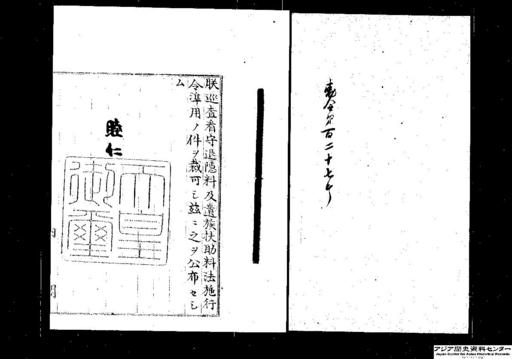 勅令第百二十七号
朕巡査看守退隠料及遺族扶助料法施行
令準用ノ件ヲ裁可シ茲ニ之ヲ公布セシ
ム
睦仁
天皇御璽
アジア歴史資料センター
Japan Center for Asian Historical Records